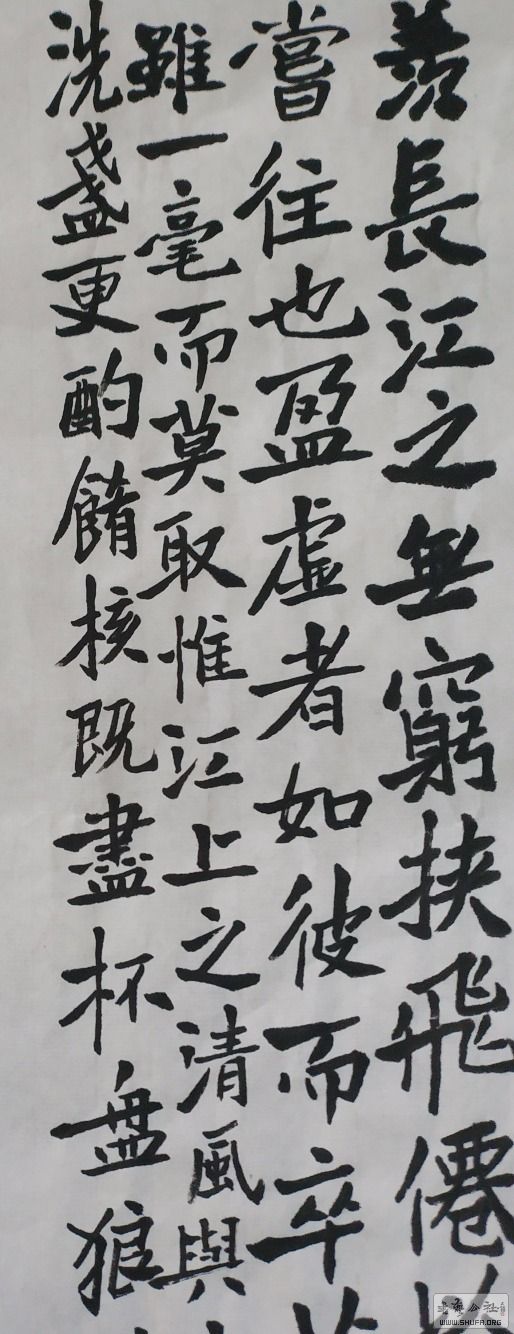 羨長江之無窮挾飛僊以
嘗往也盈虛者如彼而卒莫
雖一毫而莫取惟江上之清風與
洗盞更酌餚核既盡杯盤狼
WWW.SHUFA.ORG